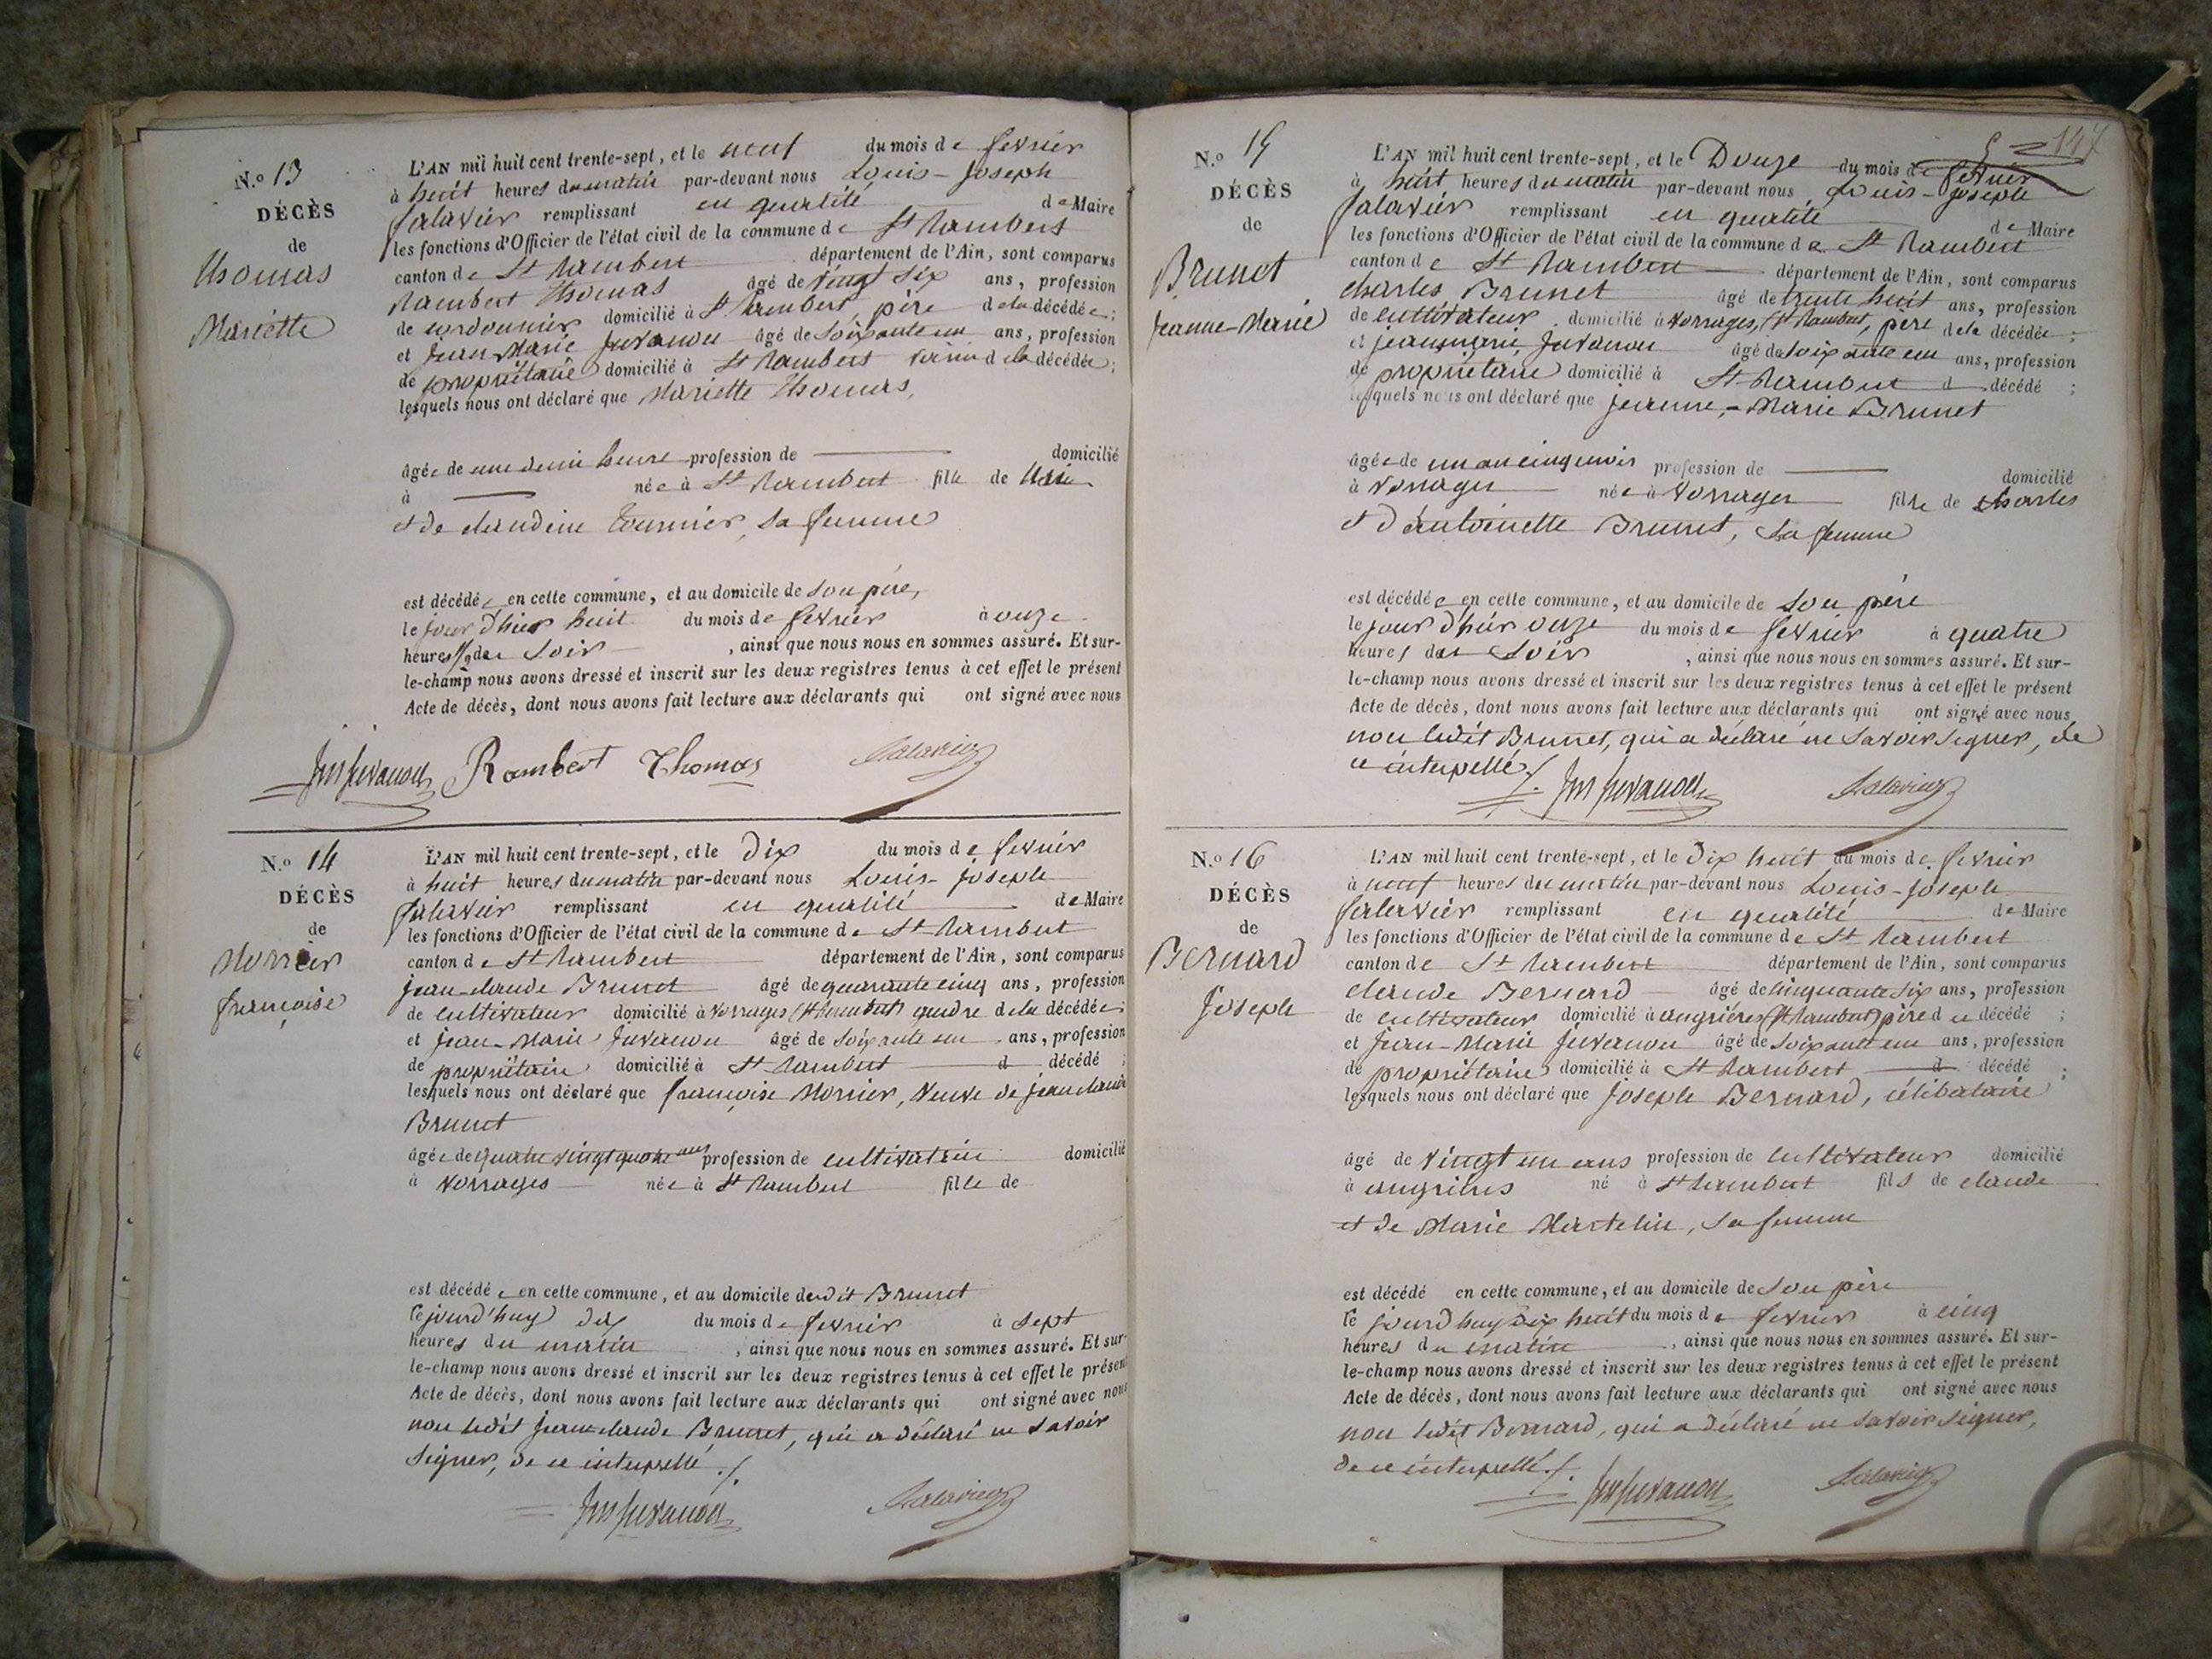 N.º 13
DÉCÈS
de
Thomas
Mariette
L'AN mil huit cent trente-sept, et le neuf du mois de fevrier
à huit heures du matin par-devant nous Louis-Joseph
Salavier remplissant en qualité de Maire
les fonctions d'Officier de l'état civil de la commune de St Rambert
canton de St Rambert département de l'Ain, sont comparus
Rambert Thomas âgé de vingt six ans, profession
de cordonnier domicilié à St Rambert, père de la décédée;
et Jean Marie Juvanon âgé de soixante un ans, profession
de propriétaire domicilié à St Rambert voisin de la décédée;
lesquels nous ont déclaré que Mariette Thomas,
âgée de une demi heure profession de domicilié
à née à St Rambert fille de
et de claudine Tournier, sa femme
est décédée en cette commune, et au domicile de son père,
le jour d'hier huit du mois de fevrier à onze
heures 1/2 du soir, ainsi que nous nous en sommes assuré. Et sur-
le-champ nous avons dressé et inscrit sur les deux registres tenus à cet effet le présent
Acte de décès, dont nous avons fait lecture aux déclarants qui ont signé avec nous
Jm Juvanon Rambert Thomas Salavier
N.º 14
DÉCÈS
de
Mornier
françoise
L'AN mil huit cent trente-sept, et le dix du mois de fevrier
à huit heures du matin par-devant nous Louis-Joseph
Salavier remplissant en qualité de Maire
les fonctions d'Officier de l'état civil de la commune de St Rambert
canton de St Rambert département de l'Ain, sont comparus
jean-claude Brunet âgé de quarante cinq ans, profession
de cultivateur domicilié à Vorrages (St Rambert) gendre de la décédée;
et Jean-Marie Juvanon âgé de soixante un ans, profession
de propriétaire domicilié à St Rambert d décédé;
lesquels nous ont déclaré que françoise Mornier, veuve de jean claude
Brunet
âgée de quatre vingt quatre ans profession de cultivatrice domicilié
à Vorrages née à St Rambert fille de
est décédée en cette commune, et au domicile dudit Brunet
le jourd'huy dix du mois de fevrier à sept
heures du matin, ainsi que nous nous en sommes assuré. Et sur-
le-champ nous avons dressé et inscrit sur les deux registres tenus à cet effet le présent
Acte de décès, dont nous avons fait lecture aux déclarants qui ont signé avec nous
non ledit jean claude Brunet, qui a déclaré ne savoir
signer, de ce interpellé ./.
Jm Juvanon Salavier
147
N.º 15
DÉCÈS
de
Brunet
Jeanne-Marie
L'AN mil huit cent trente-sept, et le Douze du mois de fevrier
à huit heures du matin par-devant nous Louis-Joseph
Salavier remplissant en qualité de Maire
les fonctions d'Officier de l'état civil de la commune de St Rambert
canton de St Rambert département de l'Ain, sont comparus
Charles Brunet âgé de trente huit ans, profession
de cultivateur domicilié à Vorrages, (St Rambert, père de la décédée;
et jean marie Juvanon âgé de soixante un ans, profession
de propriétaire domicilié à St Rambert d décédé;
lesquels nous ont déclaré que jeanne-Marie Brunet
âgée de un an cinq mois profession de domicilié
à Vorrages née à Vorrages fille de charles
et d'antoinette Brunet, sa femme
est décédée en cette commune, et au domicile de son père
le jour d'hier onze du mois de fevrier à quatre
heures du soir, ainsi que nous nous en sommes assuré. Et sur-
le-champ nous avons dressé et inscrit sur les deux registres tenus à cet effet le présent
Acte de décès, dont nous avons fait lecture aux déclarants qui ont signé avec nous
non ledit Brunet, qui a déclaré ne savoir signer, de
ce interpellé ./. Jm Juvanon Salavier
N.º 16
DÉCÈS
de
Bernard
Joseph
L'AN mil huit cent trente-sept, et le dix huit du mois de fevrier
à neuf heures du matin par-devant nous Louis-Joseph
Salavier remplissant en qualité de Maire
les fonctions d'Officier de l'état civil de la commune de St Rambert
canton de St Rambert département de l'Ain, sont comparus
claude Bernard âgé de cinquante six ans, profession
de cultivateur domicilié à angrières (St Rambert) père du décédé;
et Jean-Marie Juvanon âgé de soixante un ans, profession
de propriétaire domicilié à St Rambert d décédé;
lesquels nous ont déclaré que Joseph Bernard, célibataire
âgé de vingt un ans profession de cultivateur domicilié
à angrières né à St Rambert fils de claude
et de Marie Martelin, sa femme
est décédé en cette commune, et au domicile de son père
le jourd'huy dix huit du mois de fevrier à cinq
heures du matin, ainsi que nous nous en sommes assuré. Et sur-
le-champ nous avons dressé et inscrit sur les deux registres tenus à cet effet le présent
Acte de décès, dont nous avons fait lecture aux déclarants qui ont signé avec nous
non ledit Bernard, qui a déclaré ne savoir signer,
de ce interpellé ./. Jm Juvanon Salavier